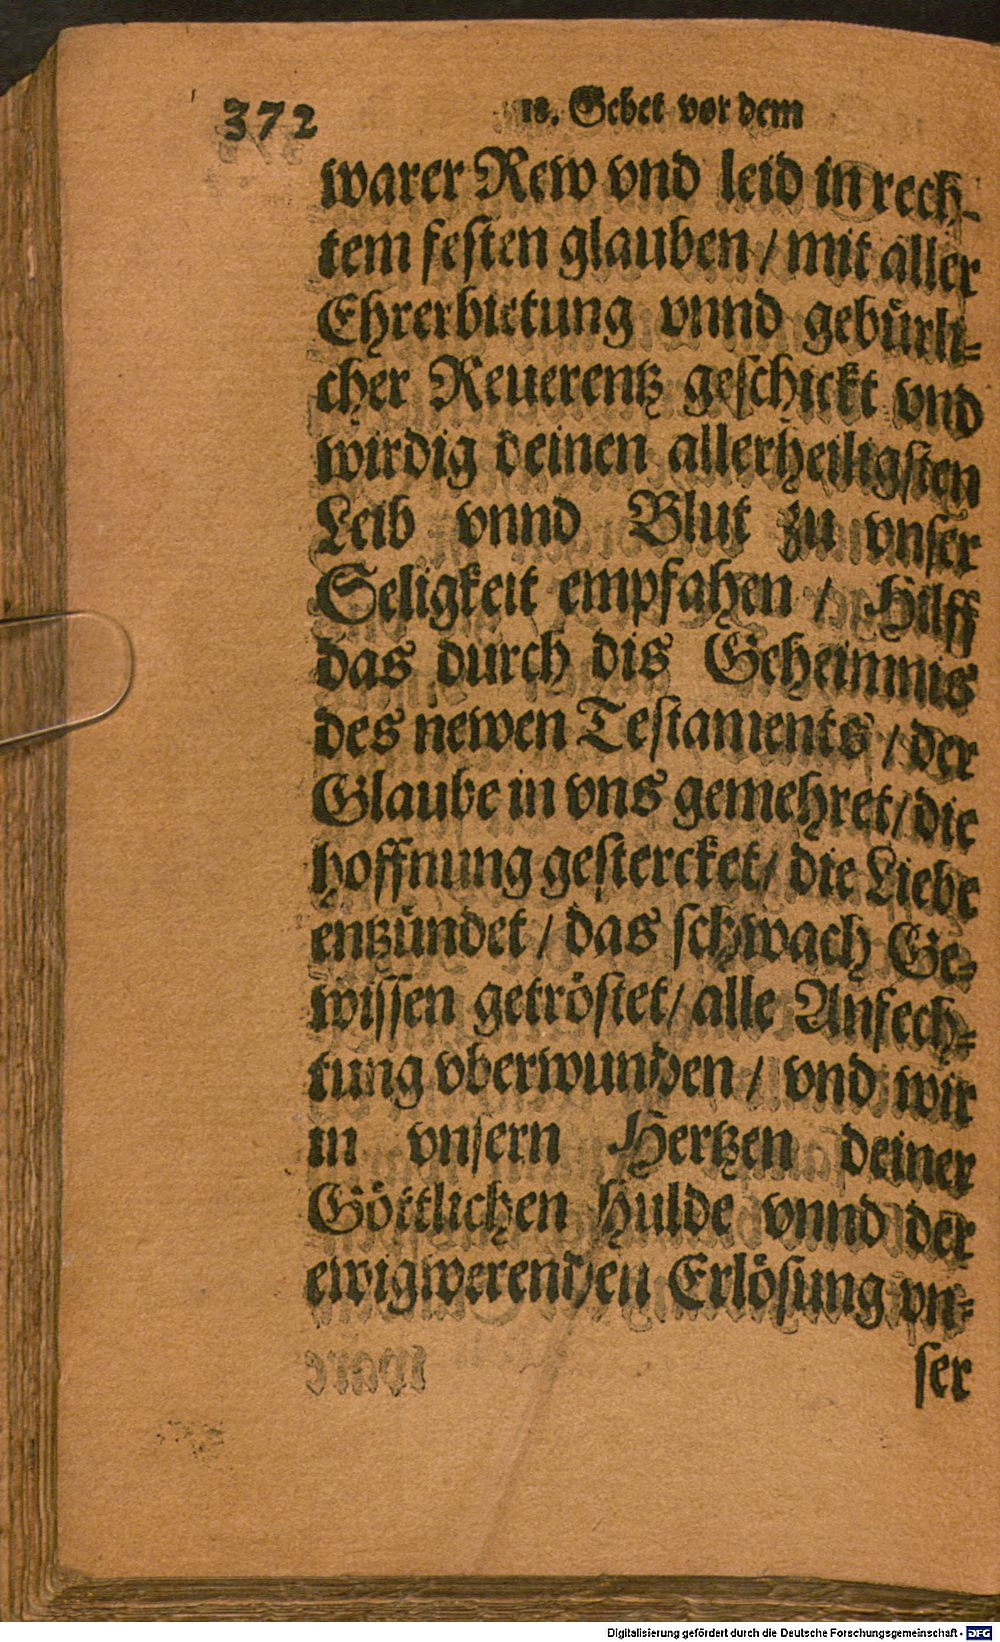 372 18. Gebet vor dem
warer Rew vnd leid in rech-
tem festen glauben / mit aller
Ehrerbietung vnnd gebürli-
cher Reuerentz geschickt vnd
wirdig deinen allerheiligsten
Leib vnnd Blut zu vnser
Seligkeit empfahen / Hilff
das durch dis Geheimnis
des newen Testaments / der
Glaube in vns gemehret / die
hoffnung gestercket / die Liebe
entzündet / das schwach Ge-
wissen getröstet / alle Anfech-
tung vberwunden / vnd wir
in vnsern Hertzen deiner
Göttlichen Hulde vnnd der
ewigwerenden Erlösung vn-
ser
Digitalisierung gefördert durch die Deutsche Forschungsgemeinschaft - DFG